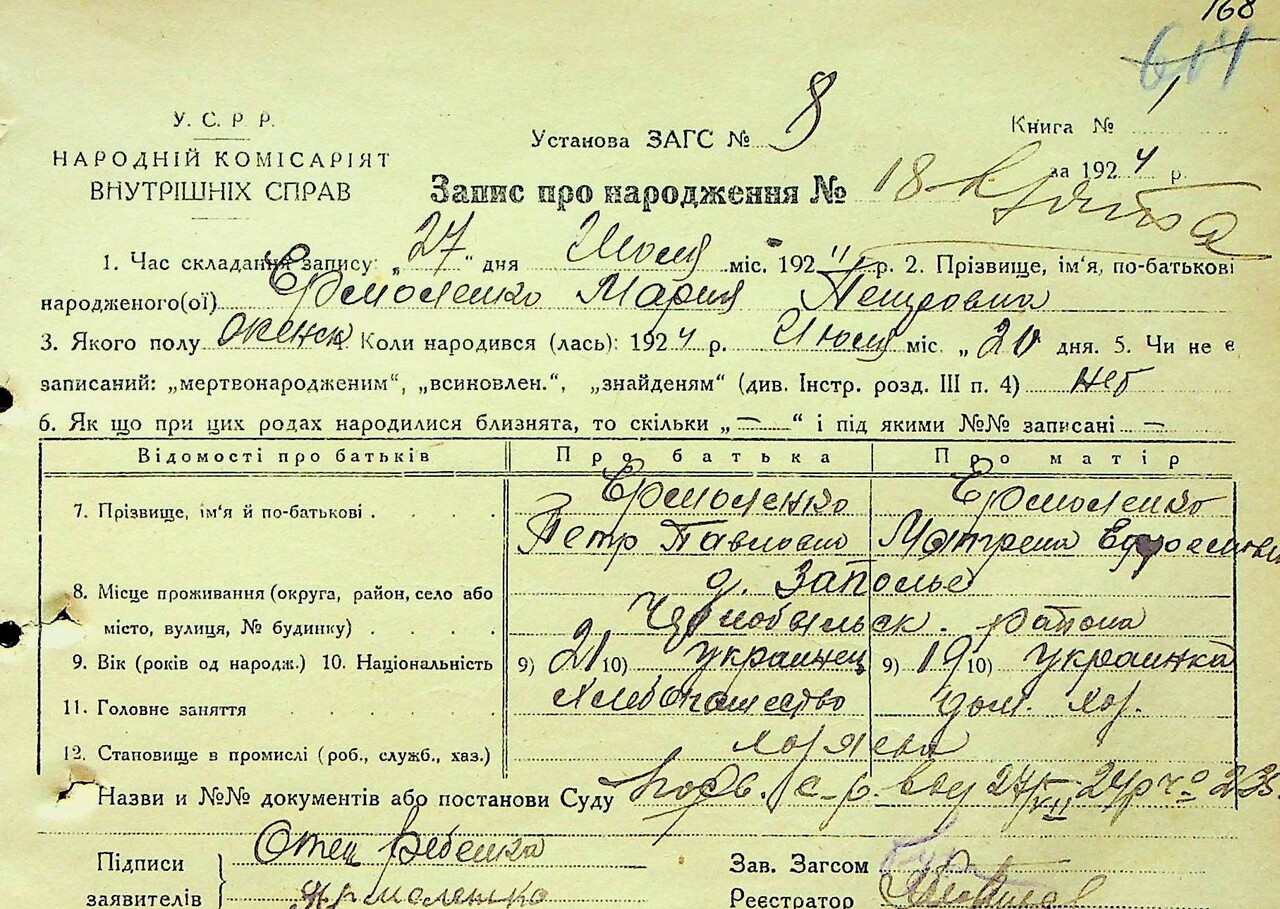 168
614
У. С. Р. Р.
НАРОДНІЙ КОМІСАРІЯТ
ВНУТРІШНІХ СПРАВ
Установа ЗАГС № 8
Книга № 1
за 1924 р.
Запис про народження № 18
1. Час складання запису: „27“ дня Июля міс. 1924 р. 2. Прізвище, ім'я, по-батькові
народженого(ої) Ермоленко Мария Петровна
3. Якого полу женск 4. Коли народився (лась): 1924 р. Июля міс. „20 дня. 5. Чи не є
записаний: „мертвонародженим“, „всиновлен.“, „знайденям“ (див. Інстр. розд. III п. 4) нет
6. Як що при цих родах народилися близнята, то скільки „—“ і під якими №№ записані —
Відомості про батьків Про батька Про матір
7. Прізвище, ім'я й по-батькові . . . . Ермоленко Ермоленко
Петр Павлович Матрена
8. Місце проживання (округа, район, село або д. Заполье
місто, вулиця, № будинку) . . . . Чернобыльск. района
9. Вік (років од народж.) 10. Національність 9) 21 10) украинец 9) 19 10) украинка
11. Головне заняття . . . . . Хлебопашество дом. хоз.
12. Становище в промислі (роб., служб., хаз.) хозяева
Назви и №№ документів або постанови Суду 27/VII 24 р № 233
Підписи Отец Ребенка Зав. Загсом
заявителів Ярмоленко Реєстратор